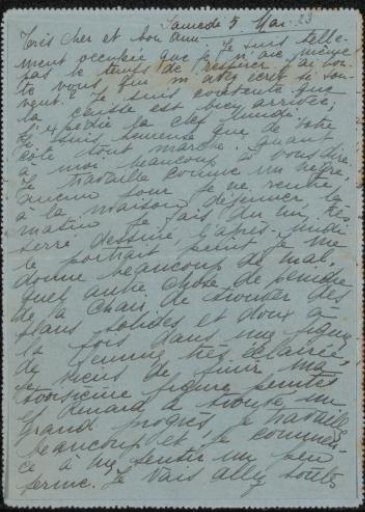 Samedi 5 Mai. 23
Très cher et bon ami. Je suis telle-
ment occupée que je n'ai même
pas le temps de respirer. J'ai hon-
te vous qui m'avez écrit si sou-
vent. Je suis contente que
la caisse est bien arrivée,
J'expédie la clef lundi.
Je suis heureuse que de votre
côté tout marche. Quant
à moi beaucoup à vous dire
Je travaille comme un nègre,
aucun jour je ne rentre
à la maison déjeuner le
matin je fais du nu très
serré, dessiné, l'après-midi
le portrait peint je me
donne beaucoup de mal.
quel autre chose de peindre
de la chair, de trouver des
plans solides et doux à
la fois dans une figure
de femme très éclairée,
Je viens de finir ma
troisième figure peinte
Renard a trouvé un
grand progrès, je travaille
beaucoup et je commen-
ce à me sentir un peu
ferme. Je vais aller toute